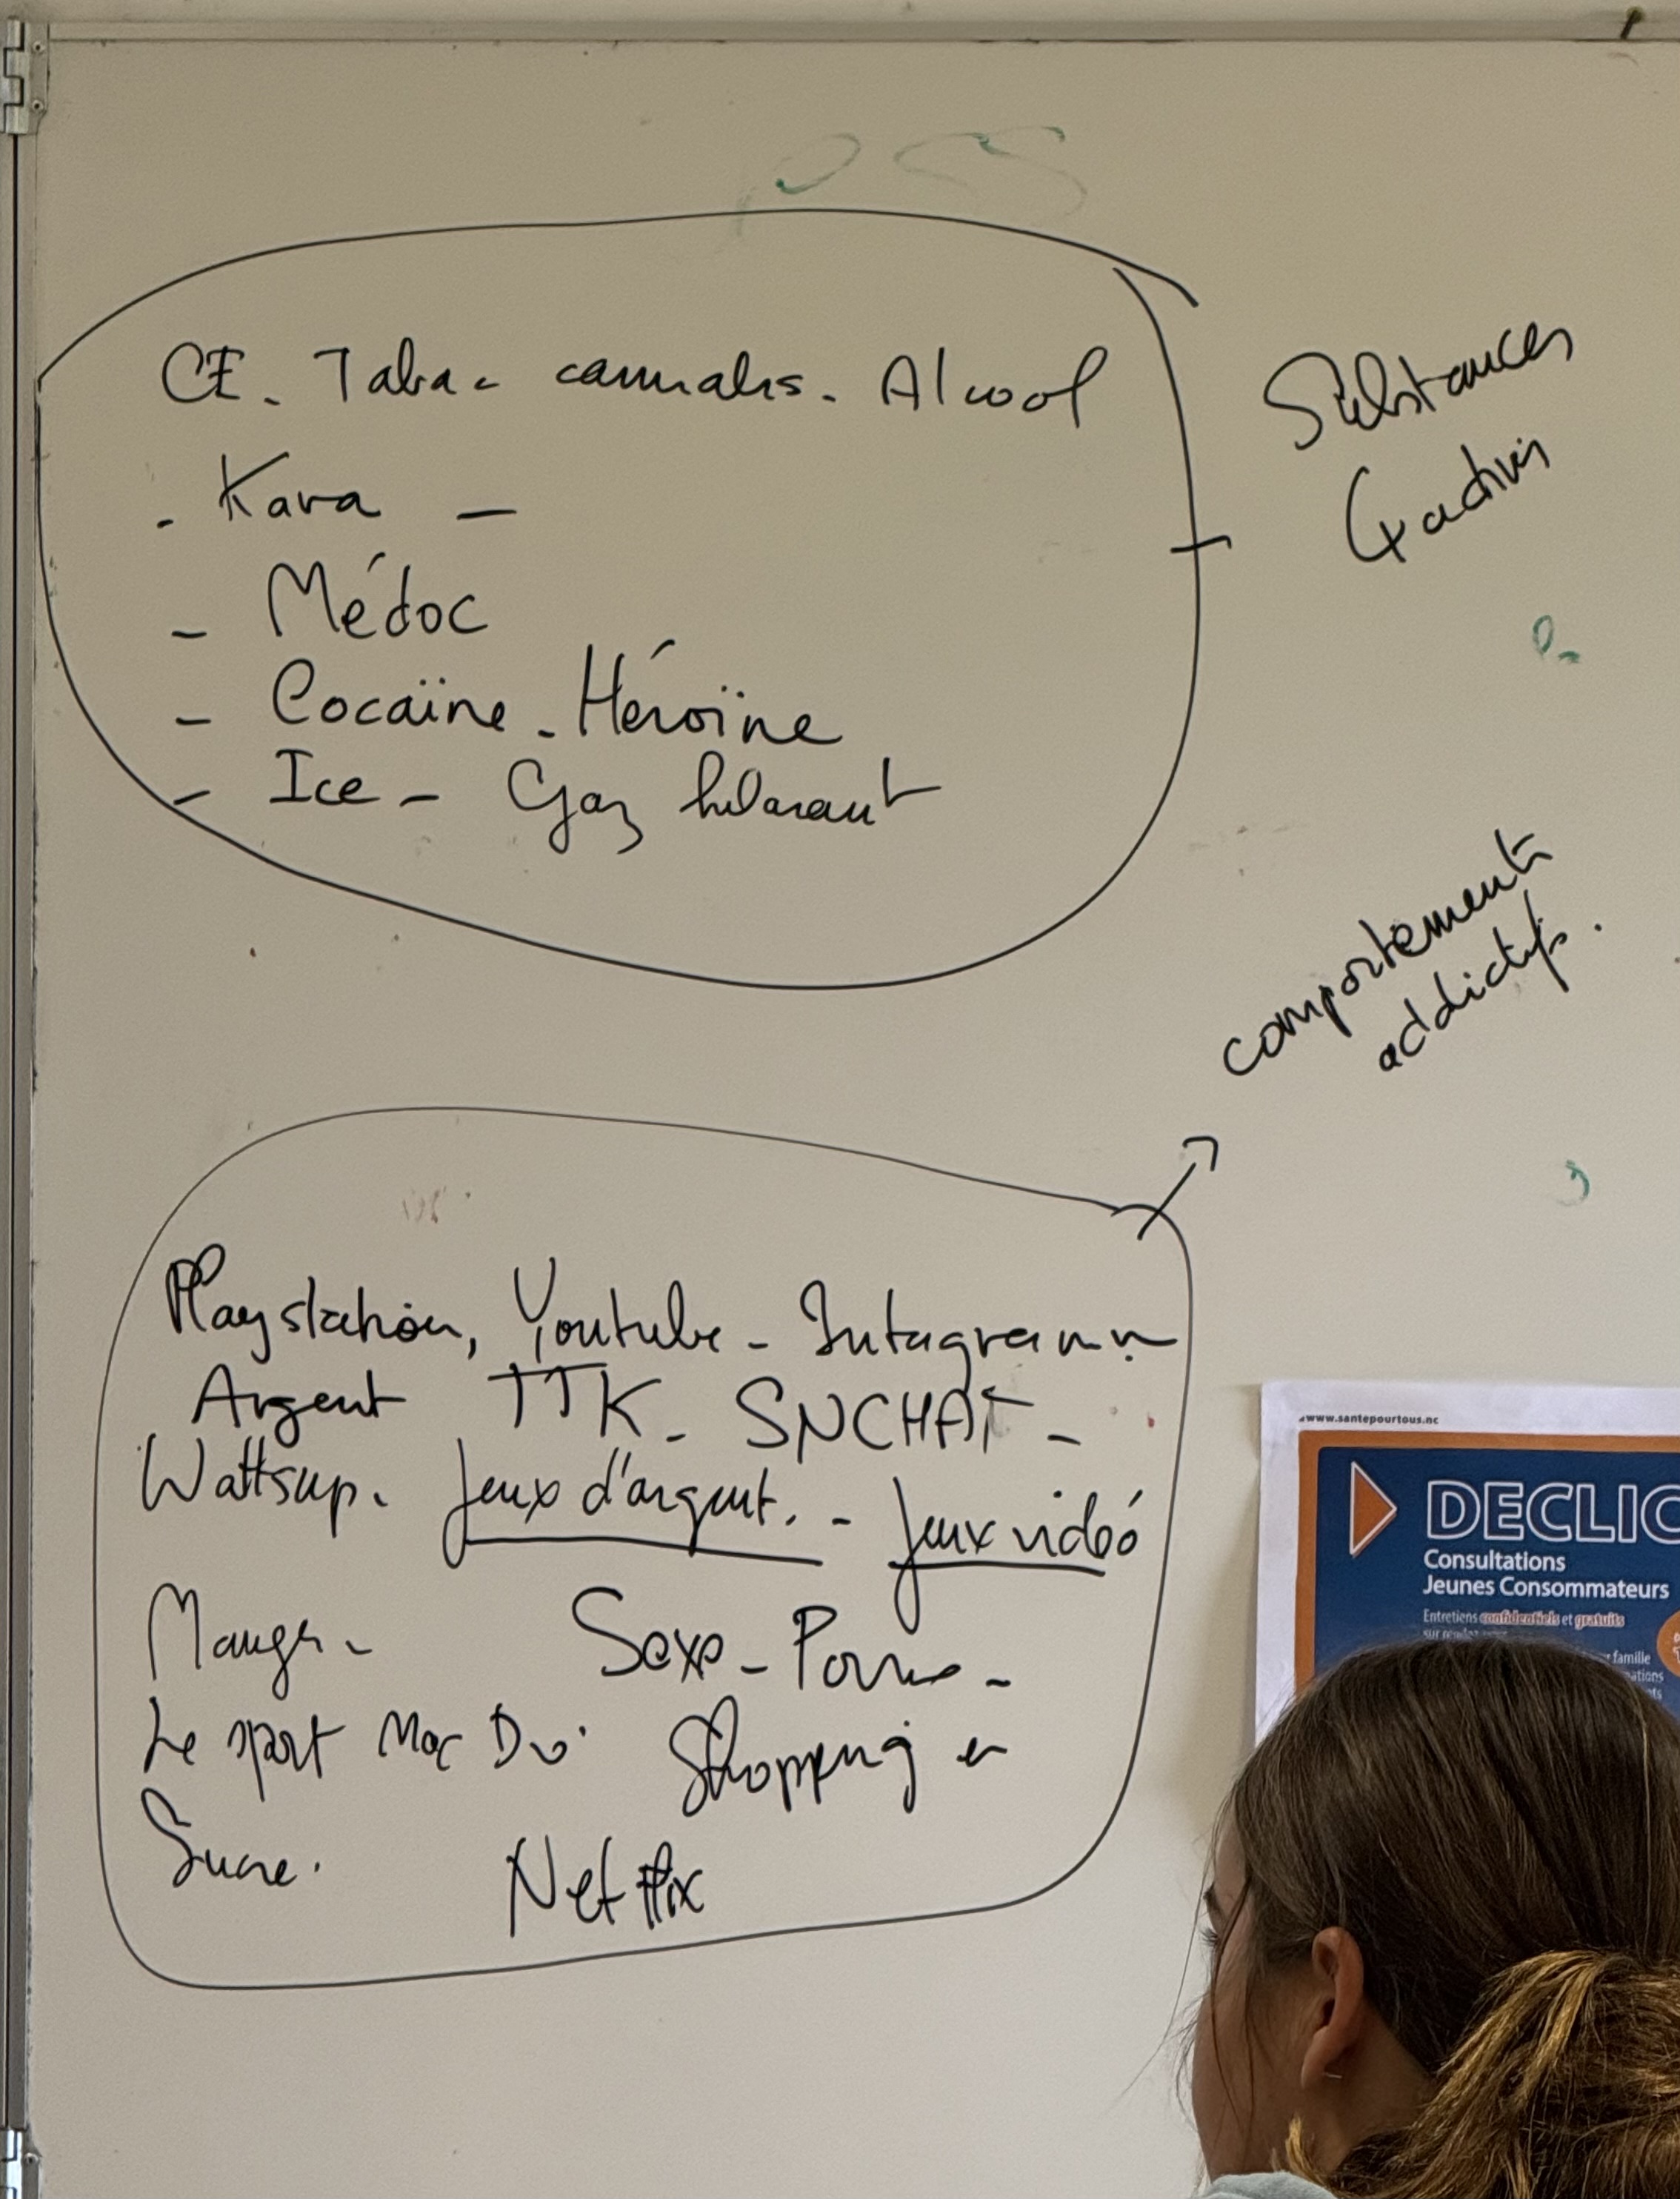 CE. Tabac cannabis. Alcool
. Kava –
– Médoc
– Cocaïne. Héroïne
– Ice – Gaz hilarant
Substances
Ψactives
comportements
addictifs.
Playstation, Youtube – Intagramm
Argent TTK – SNCHAT –
Wattsup. Jeux d'argent. – Jeux vidéó
Manger –
Sexe – Porno –
Le sport Mac Do. Shopping
Sucre.
Netflix
www.santepourtous.nc
DECLIC
Consultations
Jeunes Consommateurs
Entretiens confidentiels et gratuits
sur
famille